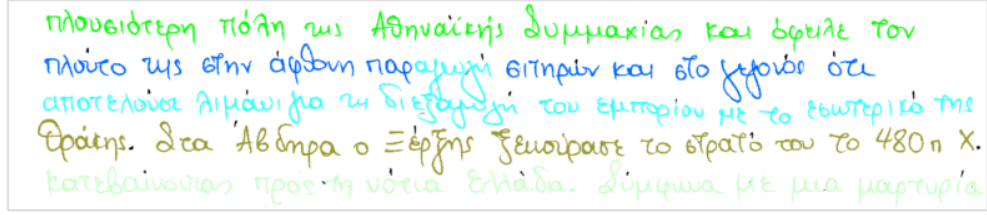 πλουσιότερη πόλη της Αθηναϊκής Συμμαχίας και όφειλε τον
πλούτο της στην άφθονη παραγωγή σιτηρών και στο γεγονός ότι
αποτελούσε λιμάνι για τη διεξαγωγή του εμπορίου με το εσωτερικό της
Θράκης. Στα Άβδηρα ο Ξέρξης ξεκούρασε το στρατό του το 480 π Χ.
κατεβαίνοντας προς τη νότια Ελλάδα. Σύμφωνα με μια μαρτυρία